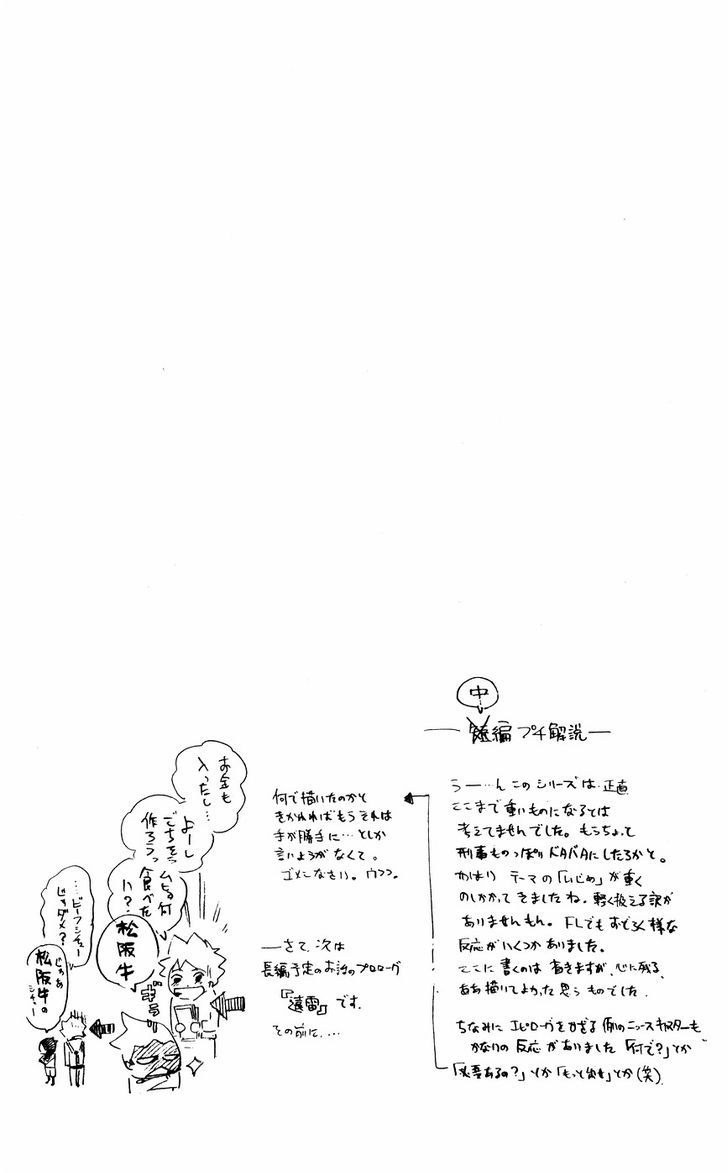 中
短編 プチ解説
うー…ん このシリーズは 正直
ここまで重いものになるとは
考えてませんでした。もうちょって
刑事ものっぽい
やはり テーマの「いじめ」が重く
のしかかってきましたね。軽く扱える訳が
ありませんもん。FLでもおどろく様な
反応がいくつかありました。
ここに書くのは 省きますが、心に残る、
ああ描いてよかったと思うものでした。
ちなみに エピローグをかざる 例のニュースキャスターも
かなりの 反応がありました「何で?」とか
「必要あるの?」とか「もっと
とか(笑)
何で描いたのかと
きかれればもう それは
手が勝手に…としか
言いようがなくて。
ゴメンなさい。ウフフ。
―さて、次は
長編予定のお話のプロローグ
『遠雷』です。
その前に….
お金も
入ったし…
よーし
ごちそう
作ろうっ
ムヒョ何
食べた
い?
松阪牛
…ビーフシチュー
じゃダメ?
じゃあ
松阪牛の
シチュー